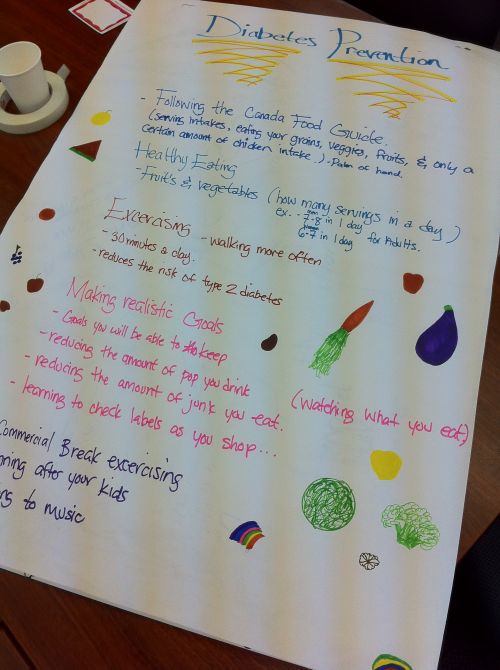 Diabetes Prevention
- Following the Canada Food Guide.
(serving intakes, eating your grains, veggies, fruits, & only a
certain amount of chicken intake) - Palm of hand.
Healthy Eating
- Fruit's & vegetables (how many servings in a day)
ex. - 7-8 in 1 day
6-7 in 1 day for Adults.
Excercising - walking more often
- 30 minutes a day.
- reduces the risk of type 2 diabetes
Making realistic Goals
- Goals you will be able to keep
- reducing the amount of pop you drink
- reducing the amount of junk you eat. (watching what you eat)
- learning to check labels as you shop...
Commercial Break excercising
after your kids
to music